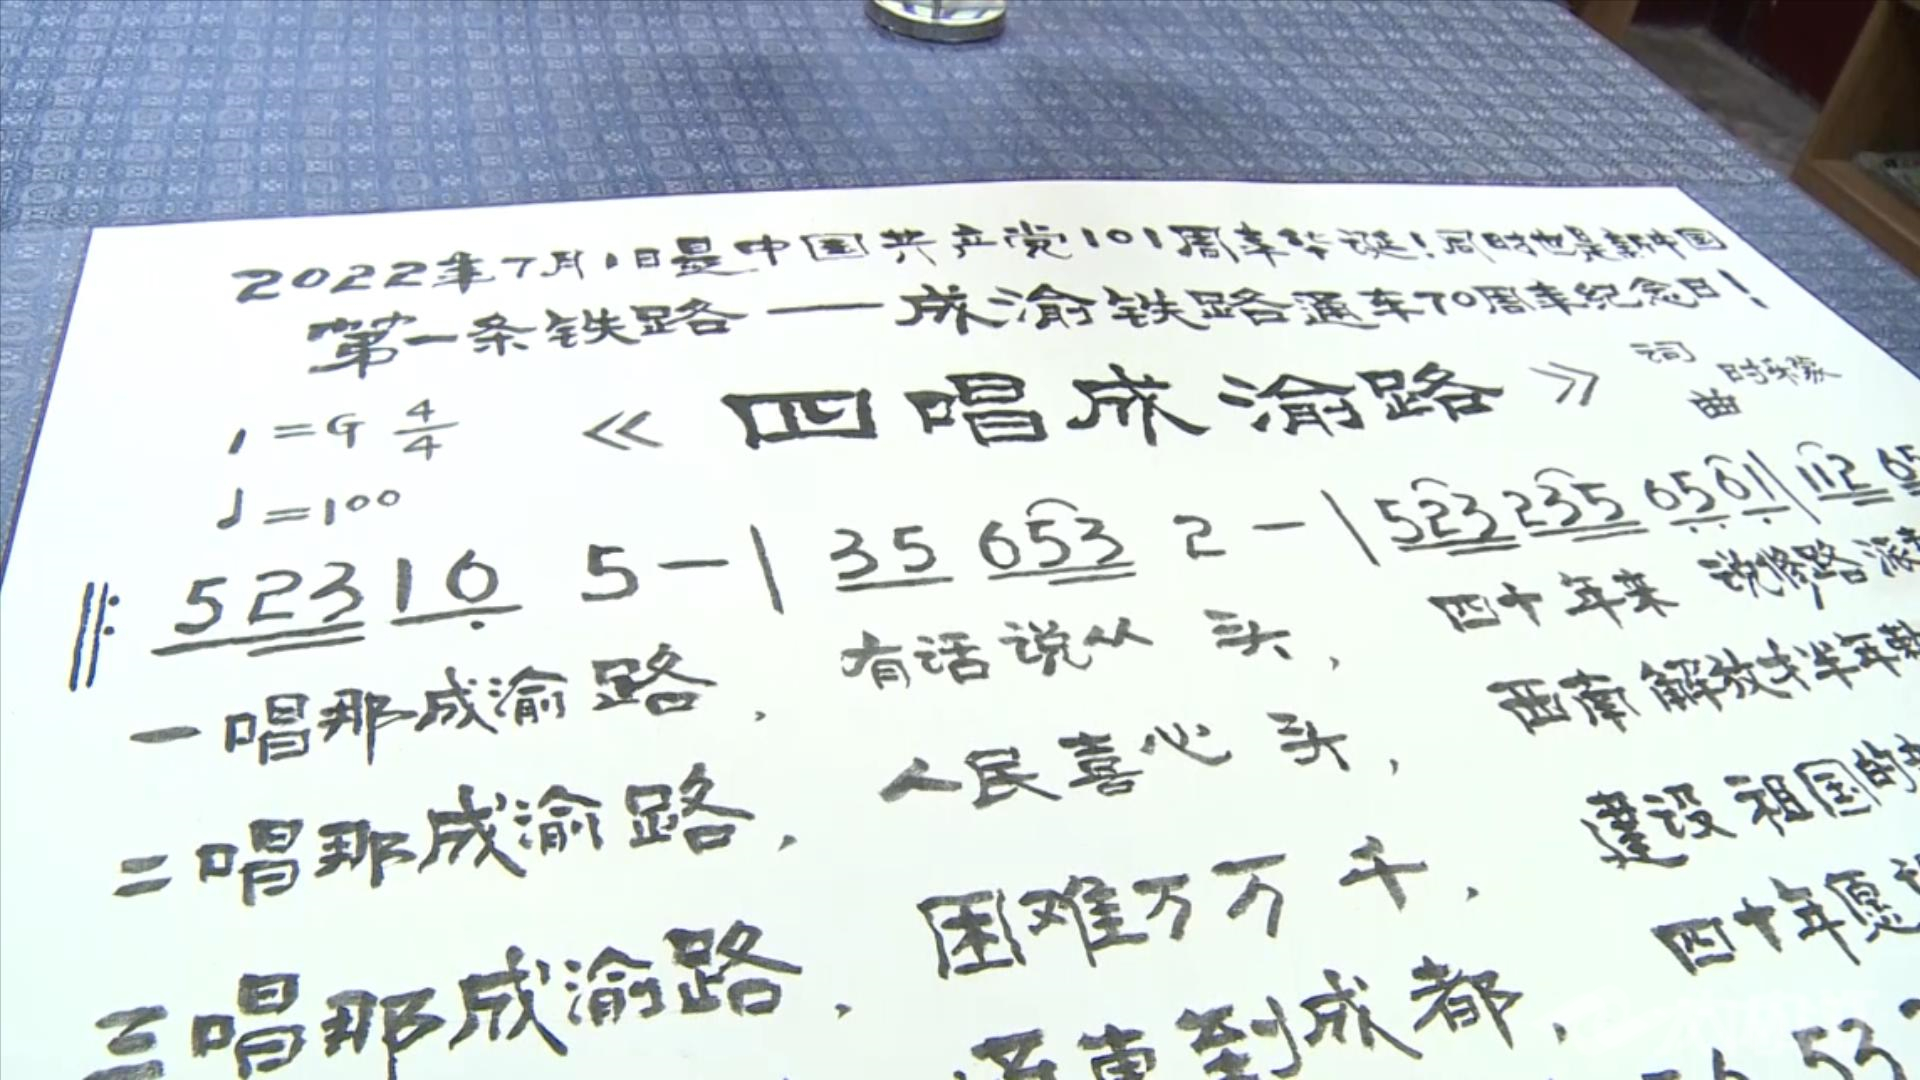 2022年7月1日是中国共产党101周年华诞！同时也是新中国
第一条铁路——成渝铁路通车70周年纪念日！
《四唱成渝路》
词
曲
1=G 4/4
♩=100
‖: 5 2 3 1 6 5 - | 3 5 6 5 3 2 - | 5 2 3 2 3 5 6 5 6 1 | 1 1 2 6 5
一唱那成渝路， 有话说从头， 四十年来 说修路
二唱那成渝路， 人民喜心头， 西南解放才半年
三唱那成渝路， 困难万万千， 建设祖国的
通车到成都， 四十年愿
5 3